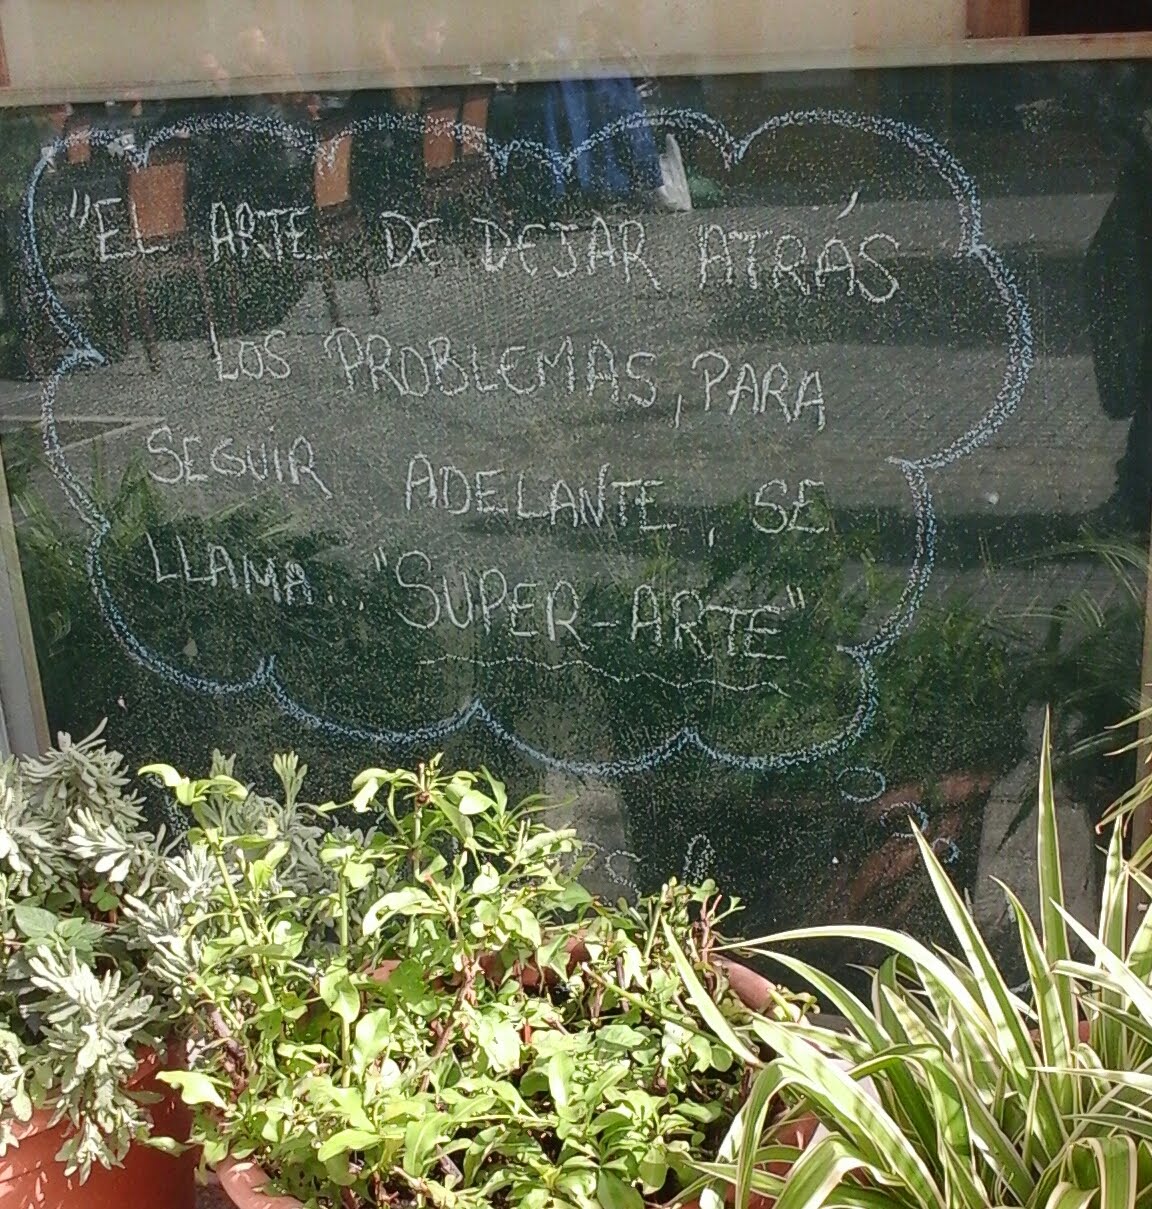 "EL ARTE DE DEJAR ATRÁS
LOS PROBLEMAS, PARA
SEGUIR ADELANTE, SE
LLAMA... "SUPER-ARTE"